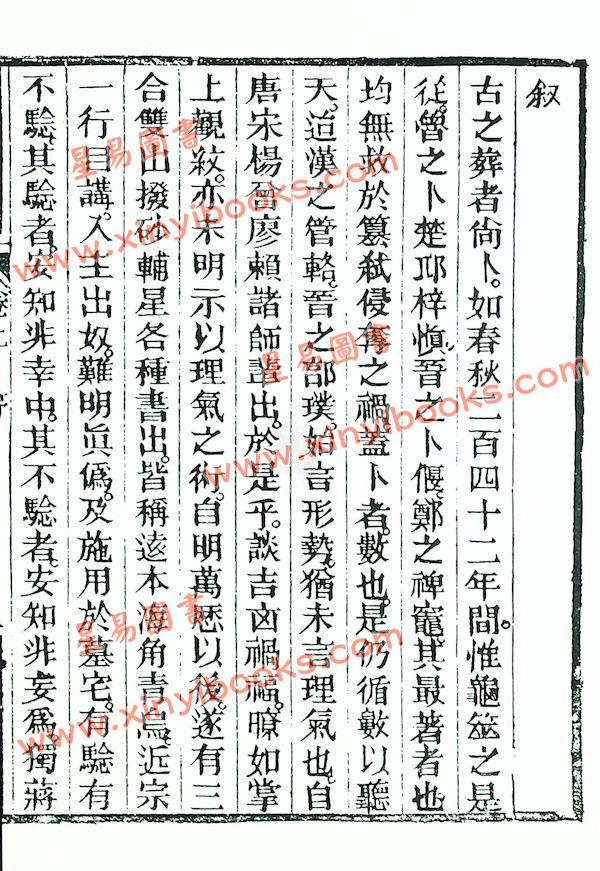 叙
古之葬者尚卜。如春秋二百四十二年間。惟龜筮之是
從。魯之卜楚邱梓慎。晉之卜偃。鄭之禆竈。其最著者也
均無救於篡弑侵奪之禍。蓋卜者。數也。是仍循數以聽
天。迨漢之管輅。晉之郭璞。始言形勢。猶未言理氣也。自
唐宋楊曾廖賴諸師輩出。於是乎。談吉凶禍福。瞭如掌
上觀紋。亦未明示以理氣之術。自明萬厯以後。遂有三
合雙山撥砂輔星各種書出。皆稱遠本海角青烏。近宗
一行目講。入主出奴。難明眞僞。及施用於墓宅。有驗有
不驗。其驗者。安知非幸中。其不驗者。安知非妄爲。獨蔣
星易圖書
www.xinyibooks.com
星易圖書
www.xinyibooks.com
星易圖書
www.xinyibooks.com